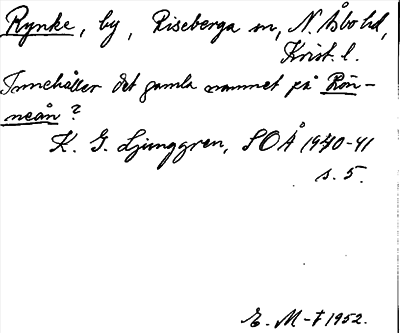 Rynke, by, Riseberga sn, N. Åsbo hd,
Krist. l.
Innehåller det gamla namnet på Rön-
neån?
K. G. Ljunggren, SOÅ 1940-41
s. 5.
E. M-t 1952.